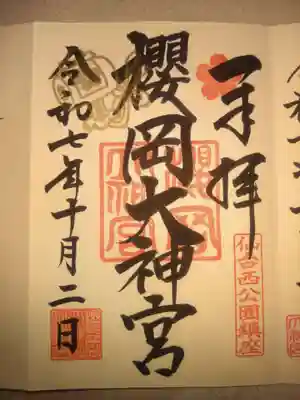 奉拝
仙台西公園鎮座
櫻岡大神宮
令和七年十月二日